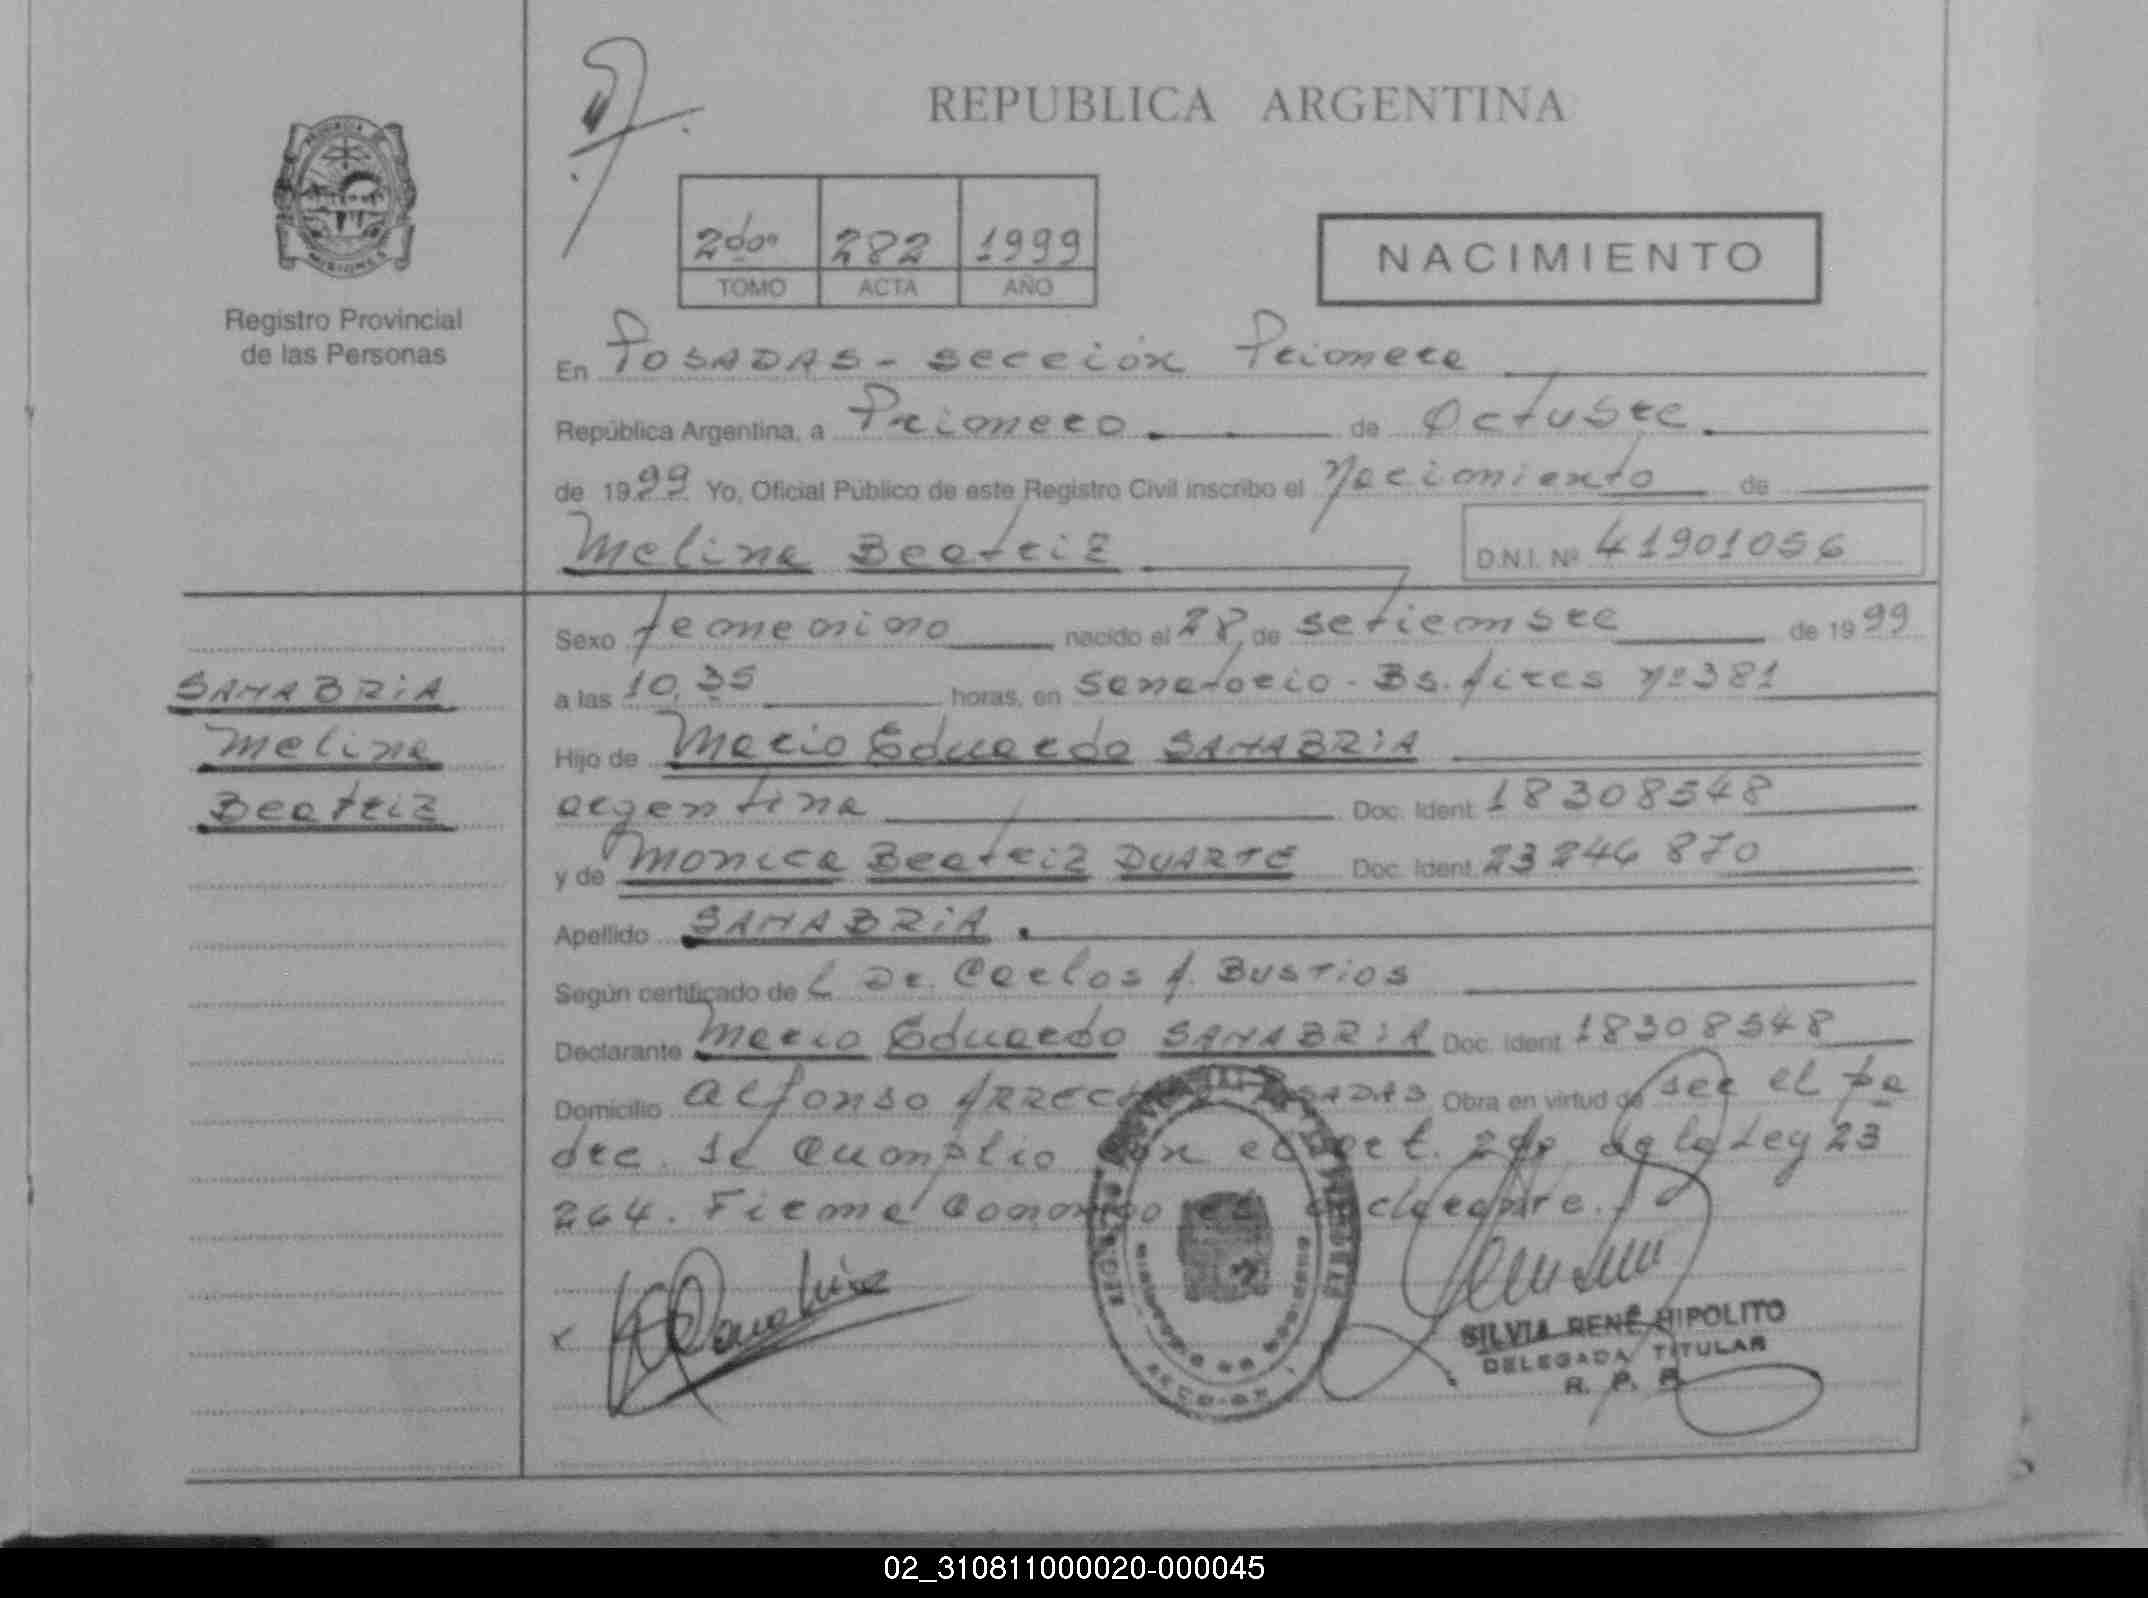 REPUBLICA ARGENTINA
PROVINCIA
MISIONES
Registro Provincial
de las Personas
2do 282 1999
TOMO ACTA AÑO
NACIMIENTO
En POSADAS - sección Primera
República Argentina, a Primero de Octubre
de 1999 Yo, Oficial Público de este Registro Civil inscribo el Nacimiento de
Melina Beatriz D.N.I. Nº 41901056
Sexo femenino nacido el 28 de setiembre de 1999
a las 10,35 horas, en Sanatorio - Bs. Aires nº 381
Hijo de Mario Eduardo SANABRIA
argentina Doc. Ident. 18308548
y de Monica Beatriz DUARTE Doc. Ident. 23246870
Apellido SANABRIA.
Según certificado de L Dr. Carlos A. BUSTIOS
Declarante Mario Eduardo SANABRIA Doc. Ident. 18308548
Domicilio Alfonso POSADAS Obra en virtud de ser el pa
dre. Se Cumplio con el art. 2do de la Ley 23
264. Firma Conmigo el declarante.
SANABRIA
Melina
Beatriz
X
SECCION 1
SILVIA RENÉ HIPOLITO
DELEGADA TITULAR
R. P. P.
02_310811000020-000045